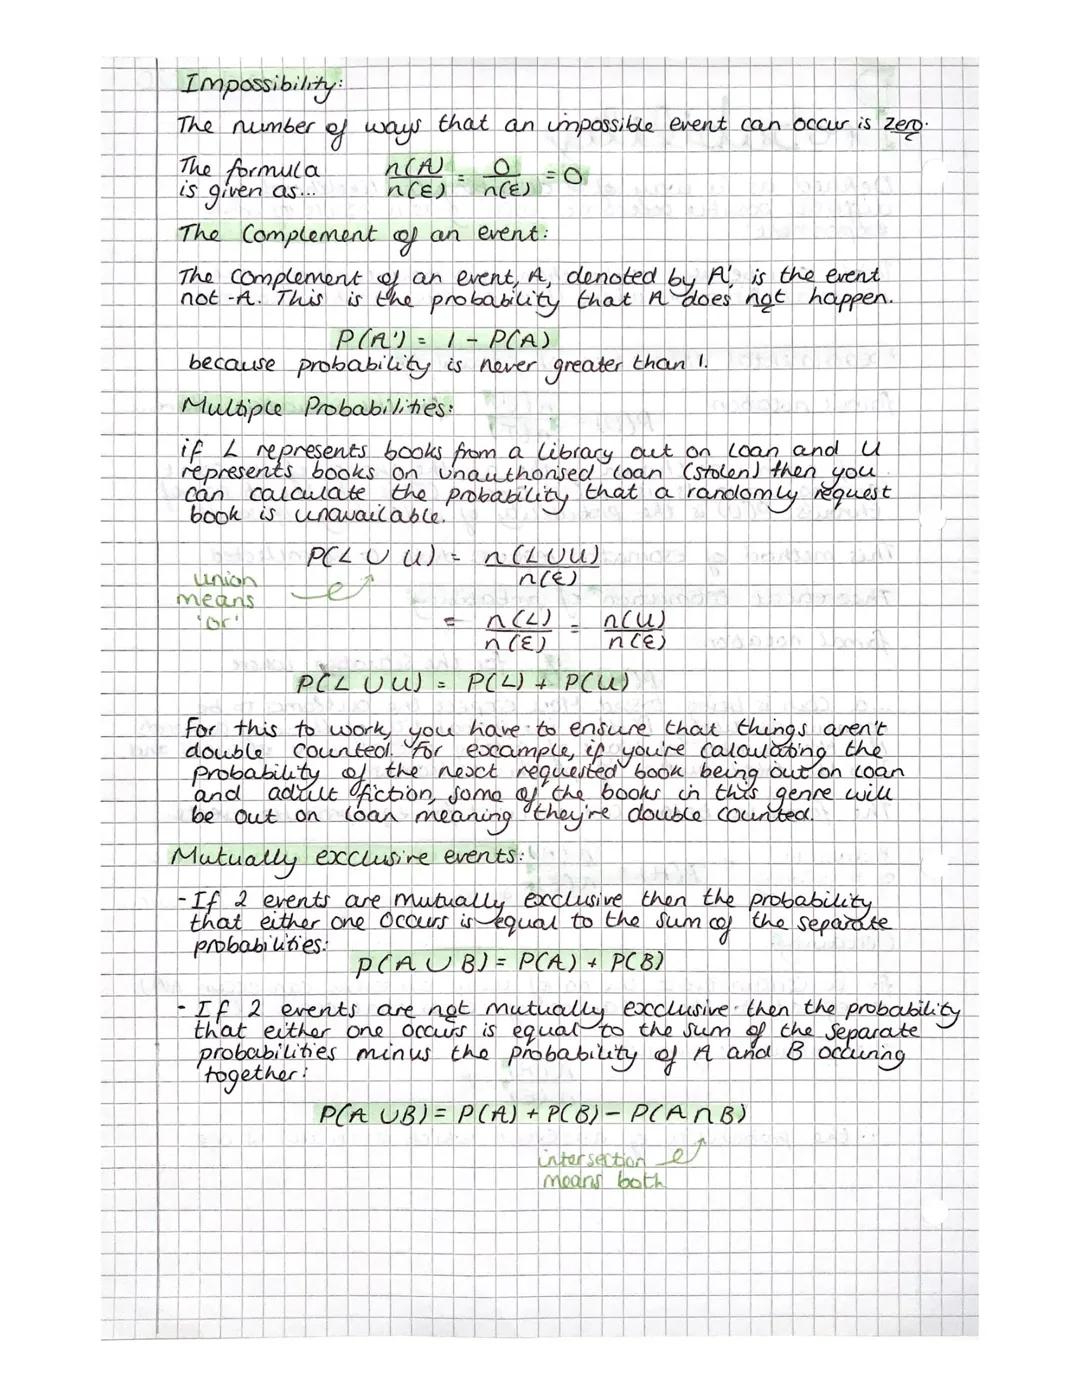 Impossibility:
The number of ways that an impossible event can occur is zero.
The formula
is given as...
n(A)/n(ε) = 0/n(ε) = 0
The Complement of an event:
The complement of an event, A, denoted by A', is the event
not-A. This is the probability that A does not happen.
P(A') = 1 - P(A)
because probability is never greater than 1.
Multiple Probabilities:
if L represents books from a library out on loan and U
represents books on unauthorised loan (stolen) then you
can calculate the probability that a randomly request
book is unavailable.
P(L ∪ U) = n(L∪U)/n(ε)
union
means
'or'
= n(L)/n(ε) = n(U)/n(ε)
P(L ∪ U) = P(L) + P(U)
For this to work, you have to ensure that things aren't
double counted. For example, if you're calculating the
probability of the next requested book being out on loan
and adult fiction, some of the books in this genre will
be out on loan meaning they're double counted.
Mutually exclusive events:
- If 2 events are mutually exclusive then the probability
that either one occurs is equal to the sum of the separate
probabilities:
P(A ∪ B) = P(A) + P(B)
- If 2 events are not mutually exclusive then the probability
that either one occurs is equal to the sum of the separate
probabilities minus the probability of A and B occuring
together:
P(A ∪ B) = P(A) + P(B) - P(A ∩ B)
intersection
means both